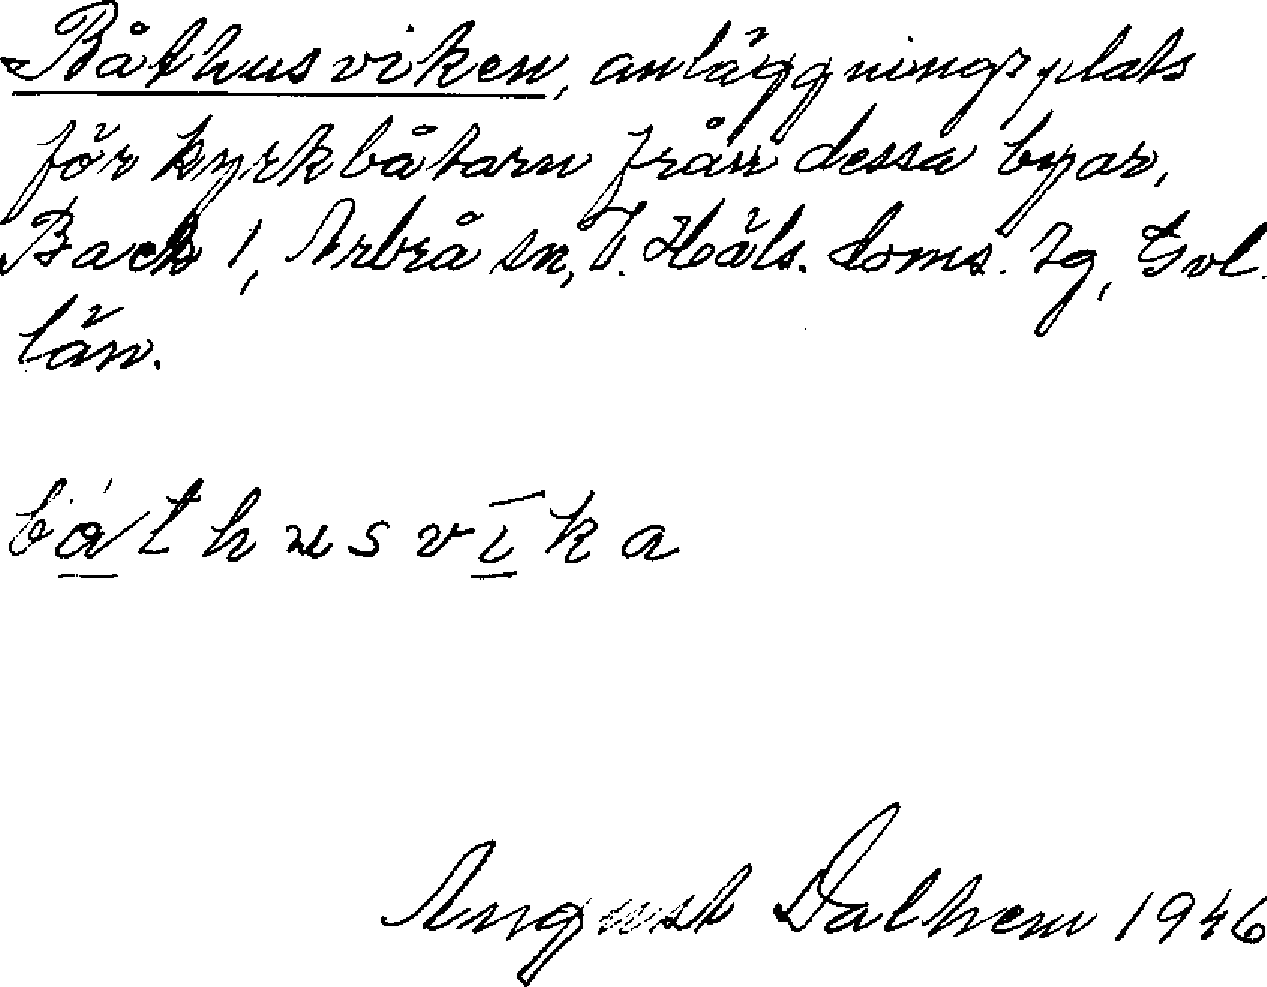 Båthusviken, anläggningsplats
för kyrkbåtarn från dessa byar,
Back 1, Arbrå sn, V. Häls. doms. Zg, Gvl.
län.
båthusvīka
August Dalhem 1946